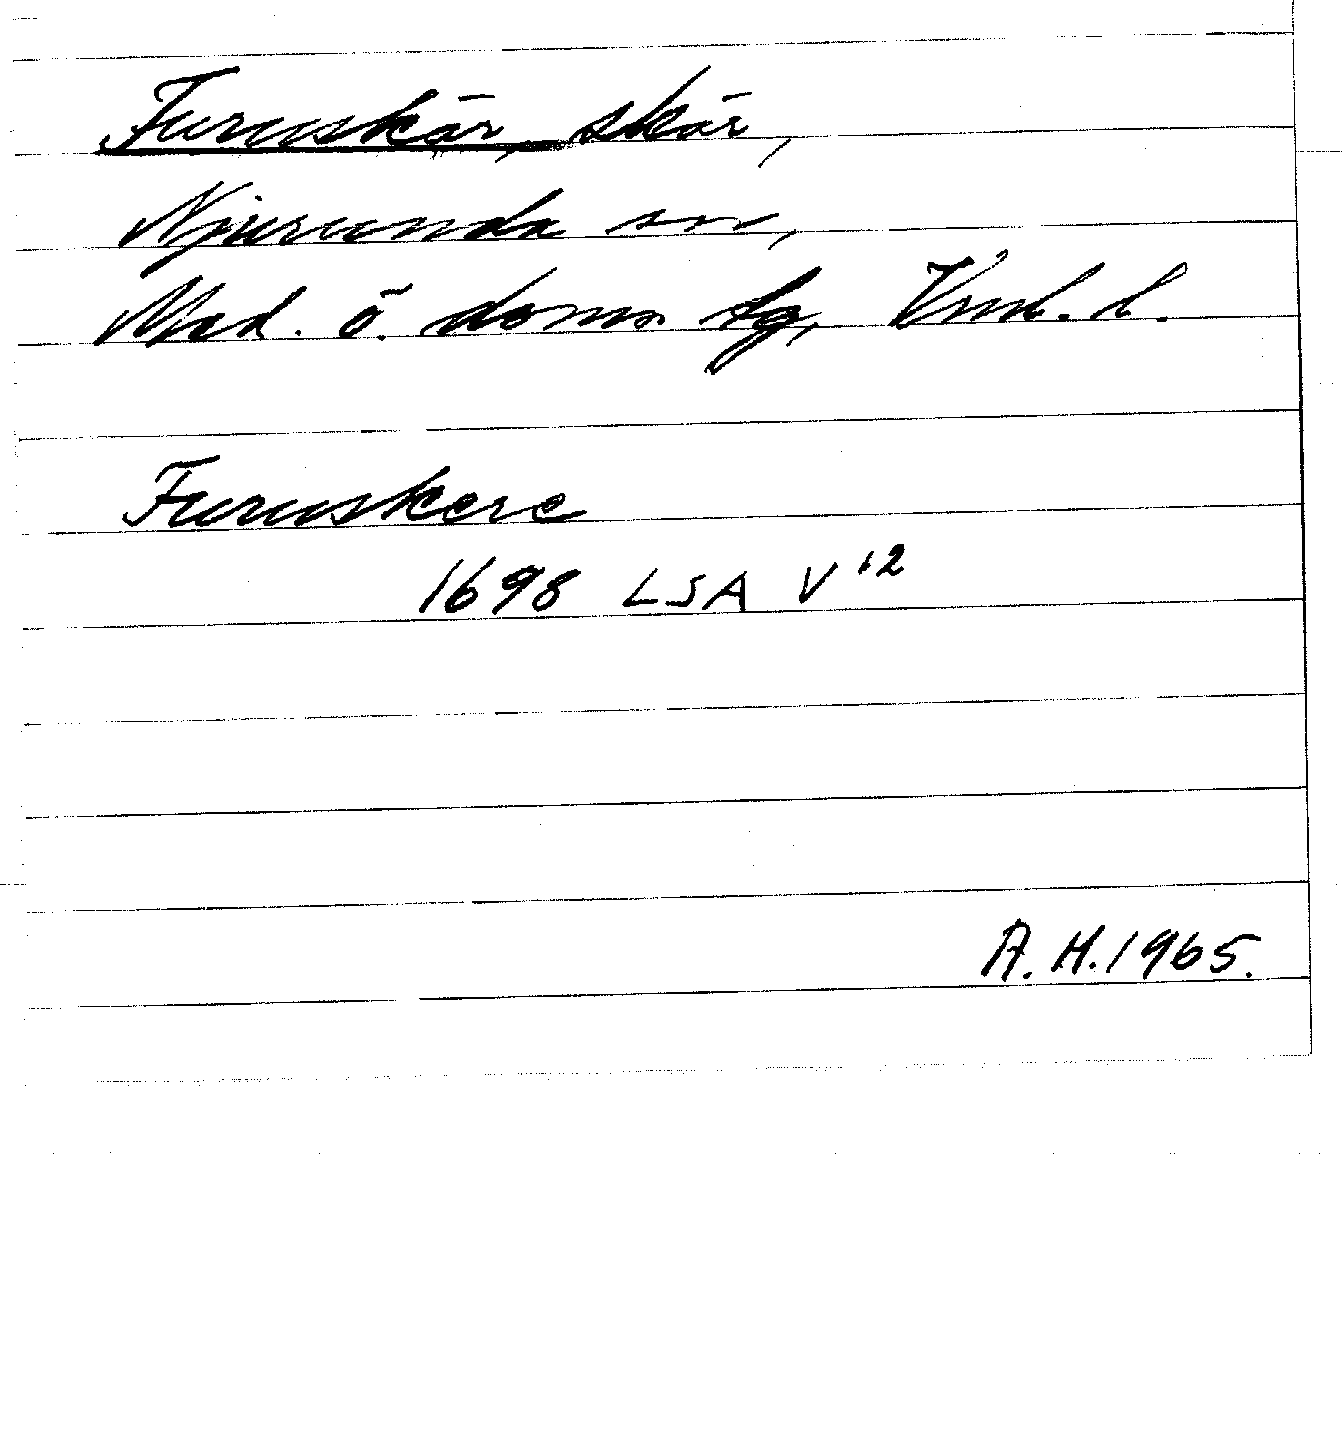 Furuskär, skär,
Njurunda sn,
Med. ö. doms tg, Vnl. l.
Furuskere
1698 LSA V 12
A. H. 1965.